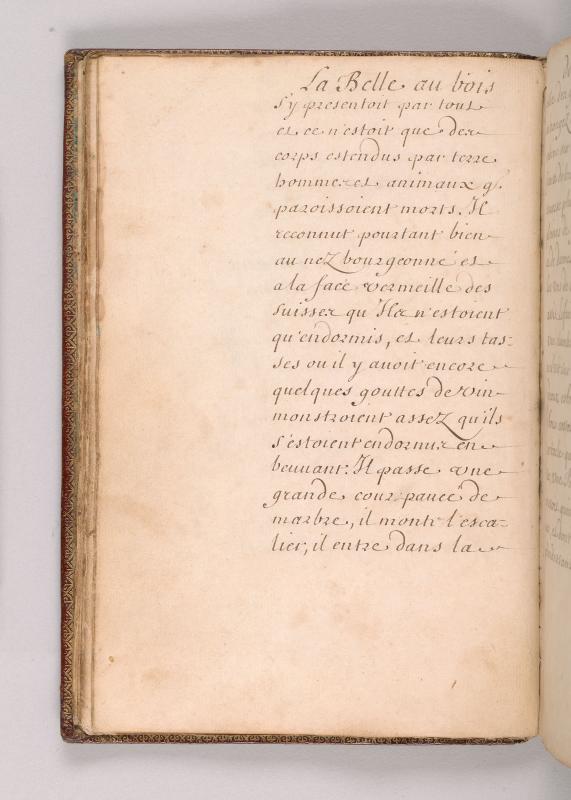 La Belle au bois
s'y presentoit par tout
et ce n'estoit que des
corps estendus par terre
hommes et animaux q.
paroissoient morts. Il
reconnut pourtant bien
au nez bourgeonné et
a la face vermeille des
suisses qu'Ils n'estoient
qu'endormis, et leurs tas-
ses ou il y auoit encore
quelques gouttes de vin
monstroient assez qu'ils
s'estoient endormis en
beuuant: Il passe vne
grande cour pauée de
marbre, il monte l'esca-
lier, il entre dans la